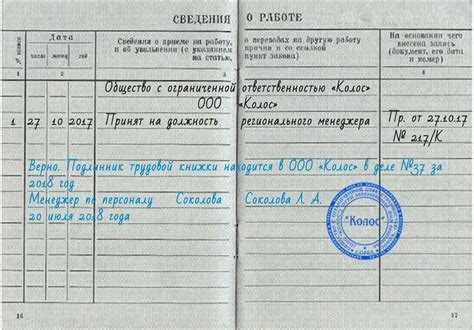 СВЕДЕНИЯ О РАБОТЕ
№ записи
Дата
число месяц год
Сведения о приеме на работу, о переводах на другую работу
и об увольнении (с указанием причин и со ссылкой
на статью, пункт закона)
На основании чего
внесена запись
(документ, его дата
и номер)
1 2 3 4
Общество с ограниченной ответственностью «Колос»
ООО «Колос»
1 27 10 2017 Принят на должность регионального менеджера Пр. от 27.10.17
№ 217/К
Верно. Подлинник трудовой книжки находится в ООО «Колос» в деле №37 за
2018 год
Менеджер по персоналу Соколова Соколова Л. А.
20 июля 2018 года
"Колос"
16
17